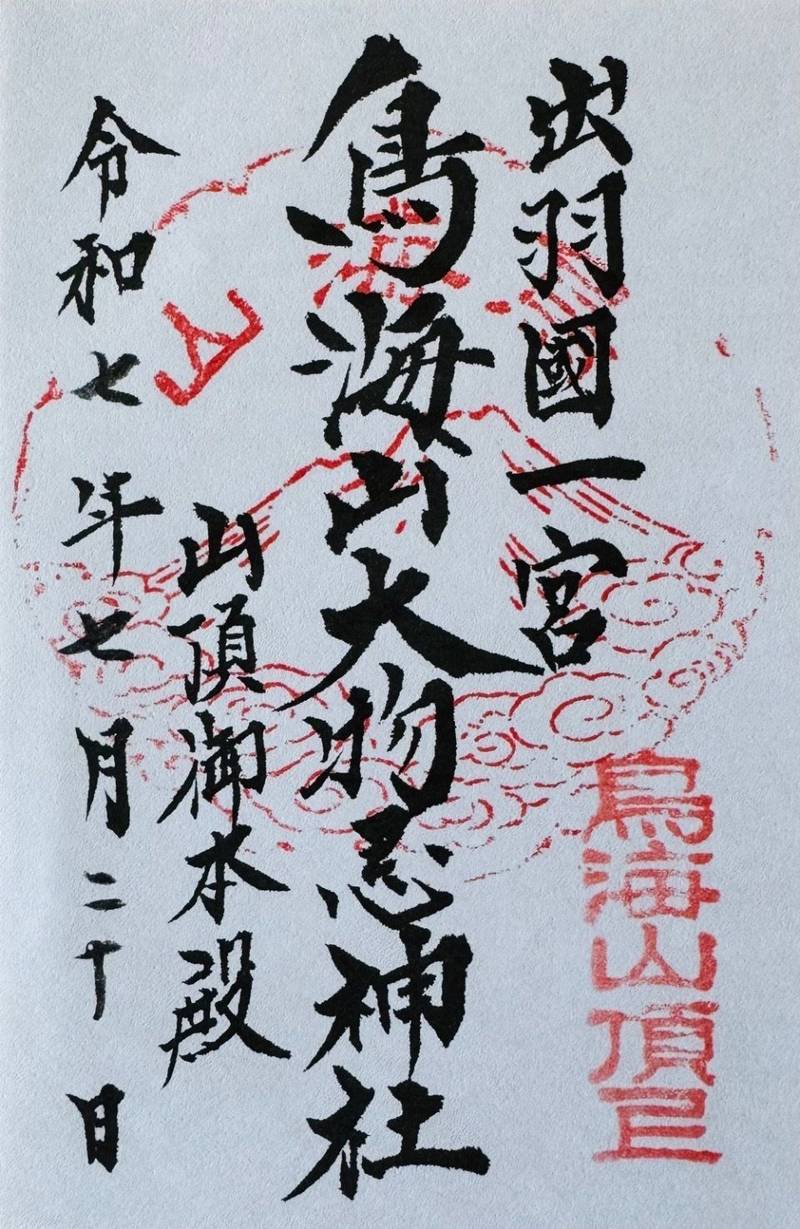 出羽國一宮
鳥海山頂
鳥海山大物忌神社
山頂御本殿
令和七年七月二十日